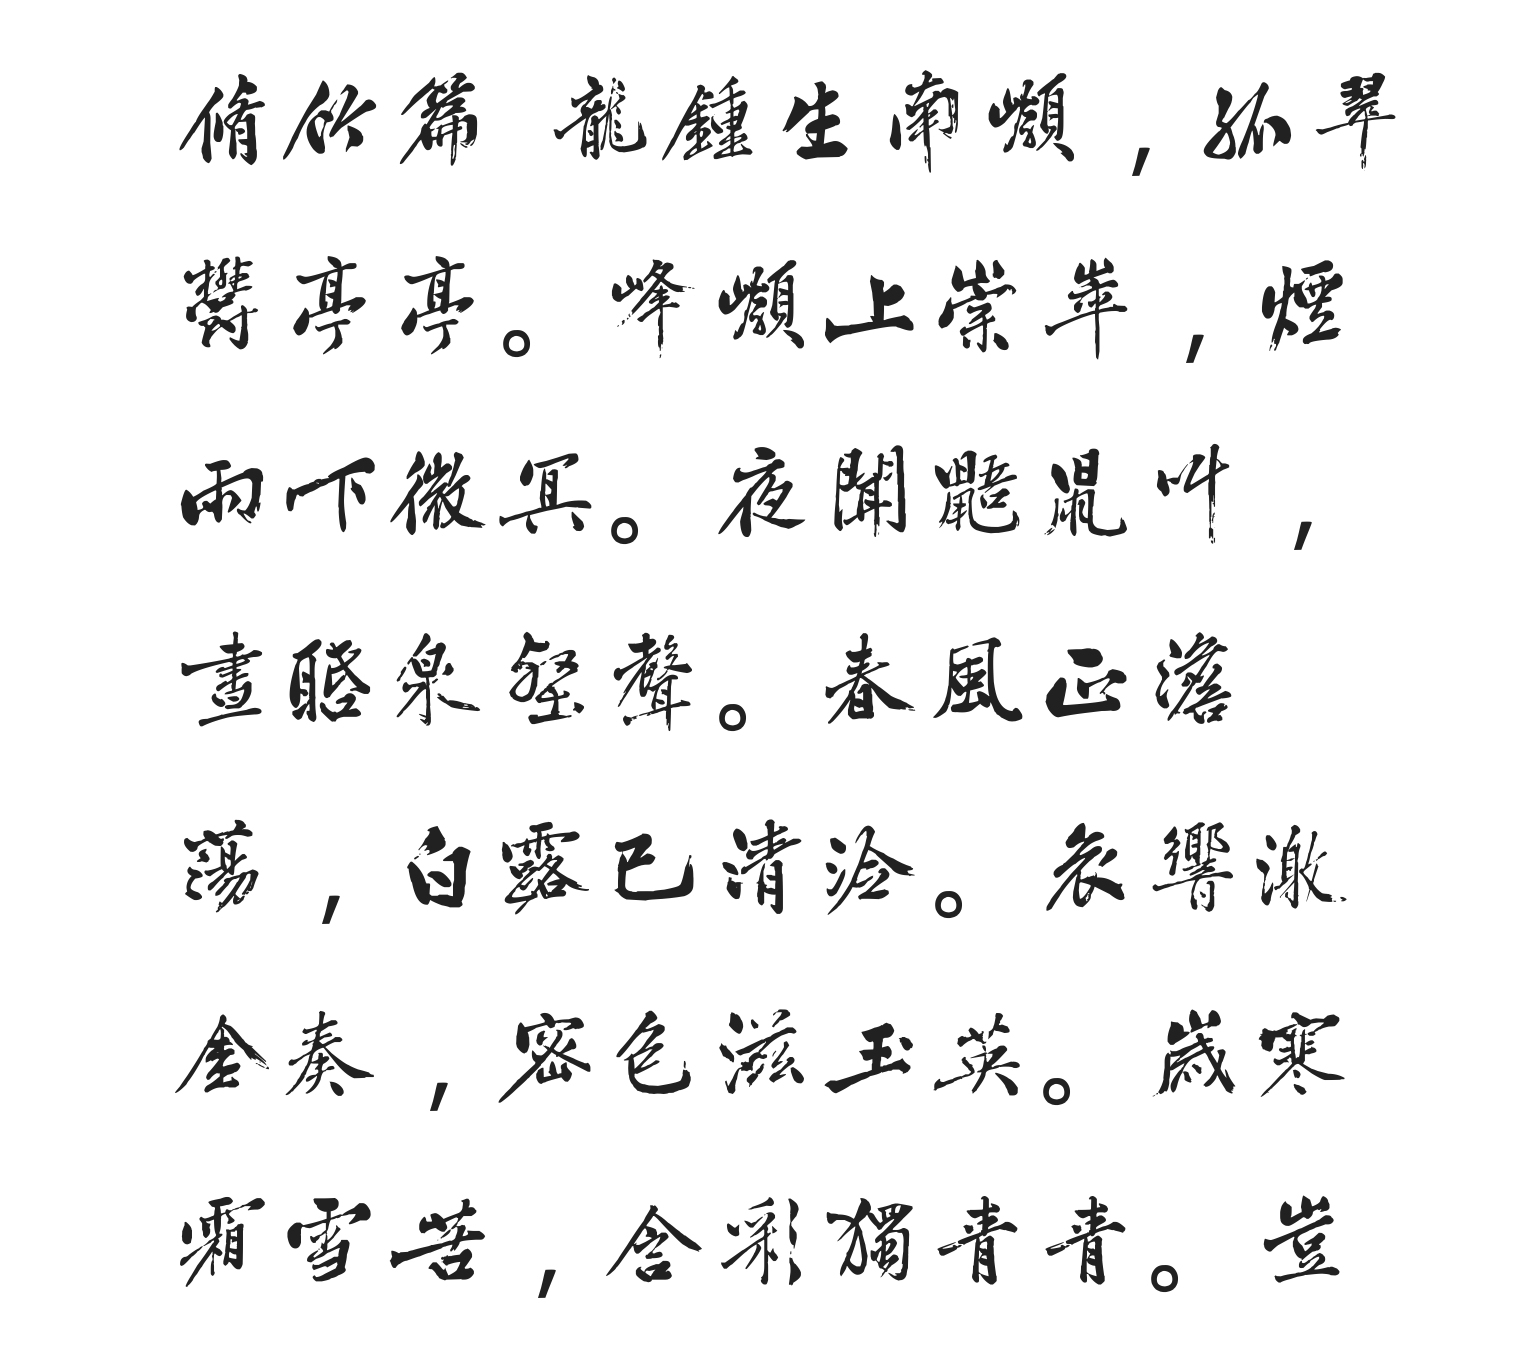 脩竹篇 龍鍾生南巔，孤翠
鬱亭亭。峰巔上崇崒，煙
雨下微冥。夜聞鼯鼠叫，
晝聒泉壑聲。春風正澹
蕩，白露已清泠。哀響激
金奏，密色滋玉英。歲寒
霜雪苦，含彩獨青青。豈